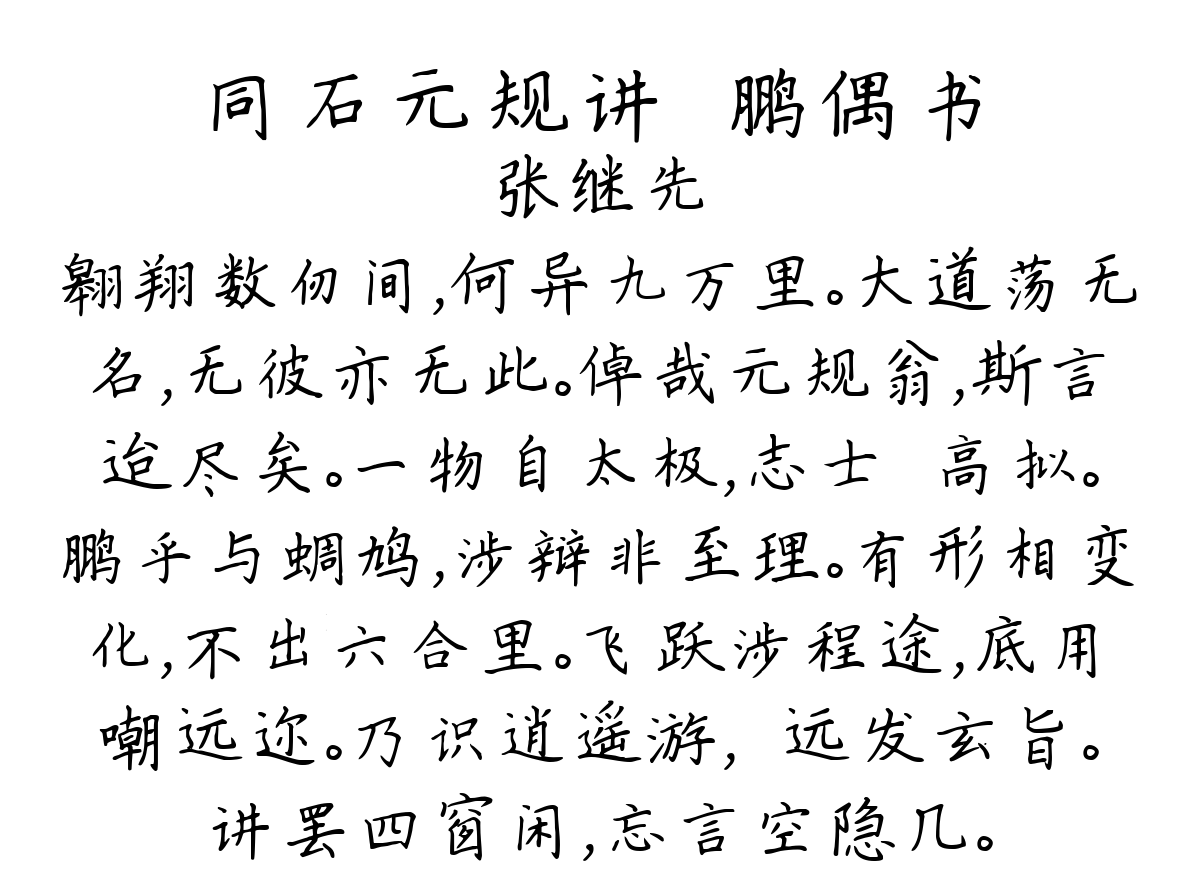 同石元规讲 鹏偶书
张继先
翱翔数仞间,何异九万里。大道荡无
名,无彼亦无此。倬哉元规翁,斯言
迨尽矣。一物自太极,志士 高拟。
鹏乎与蜩鸠,涉辩非至理。有形相变
化,不出六合里。飞跃涉程途,底用
嘲远迩。乃识逍遥游, 远发玄旨。
讲罢四窗闲,忘言空隐几。